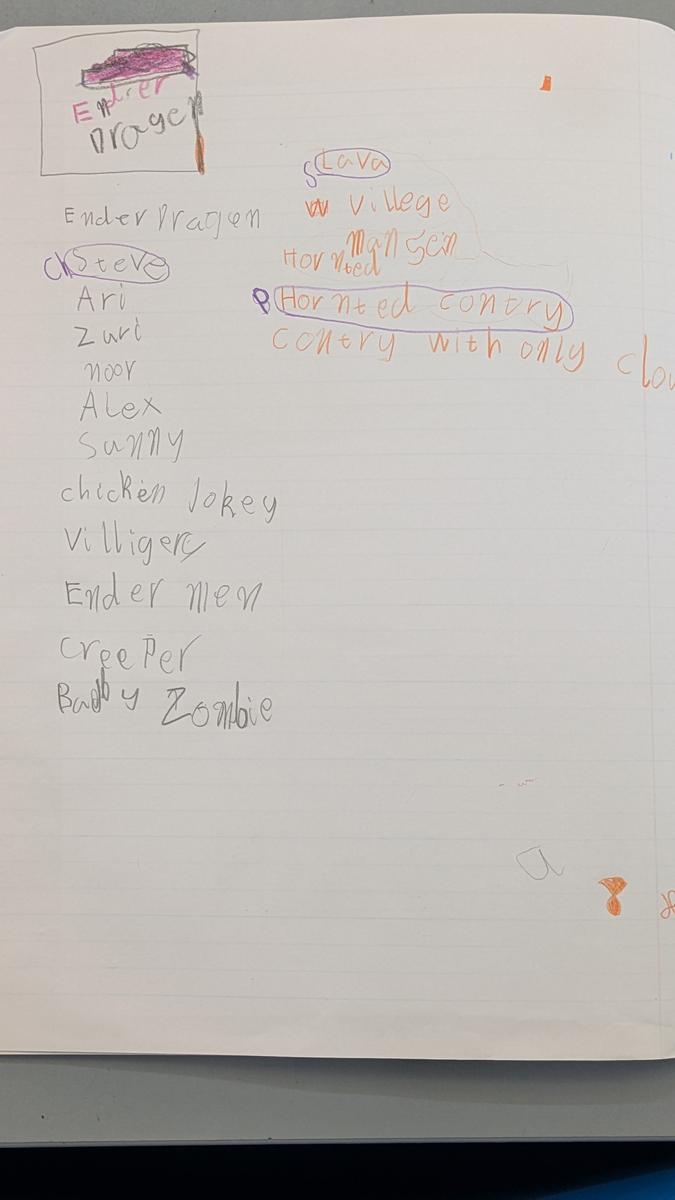 Ender
Dragen
Ender Dragen
Ch Steve
Ari
Zuri
noor
Alex
Sunny
chicken Jokey
Villigers
Ender men
creeper
Baby Zombie
S Lava
W Villege
Hornted mansein
P Hornted contry
contry with only clou
a